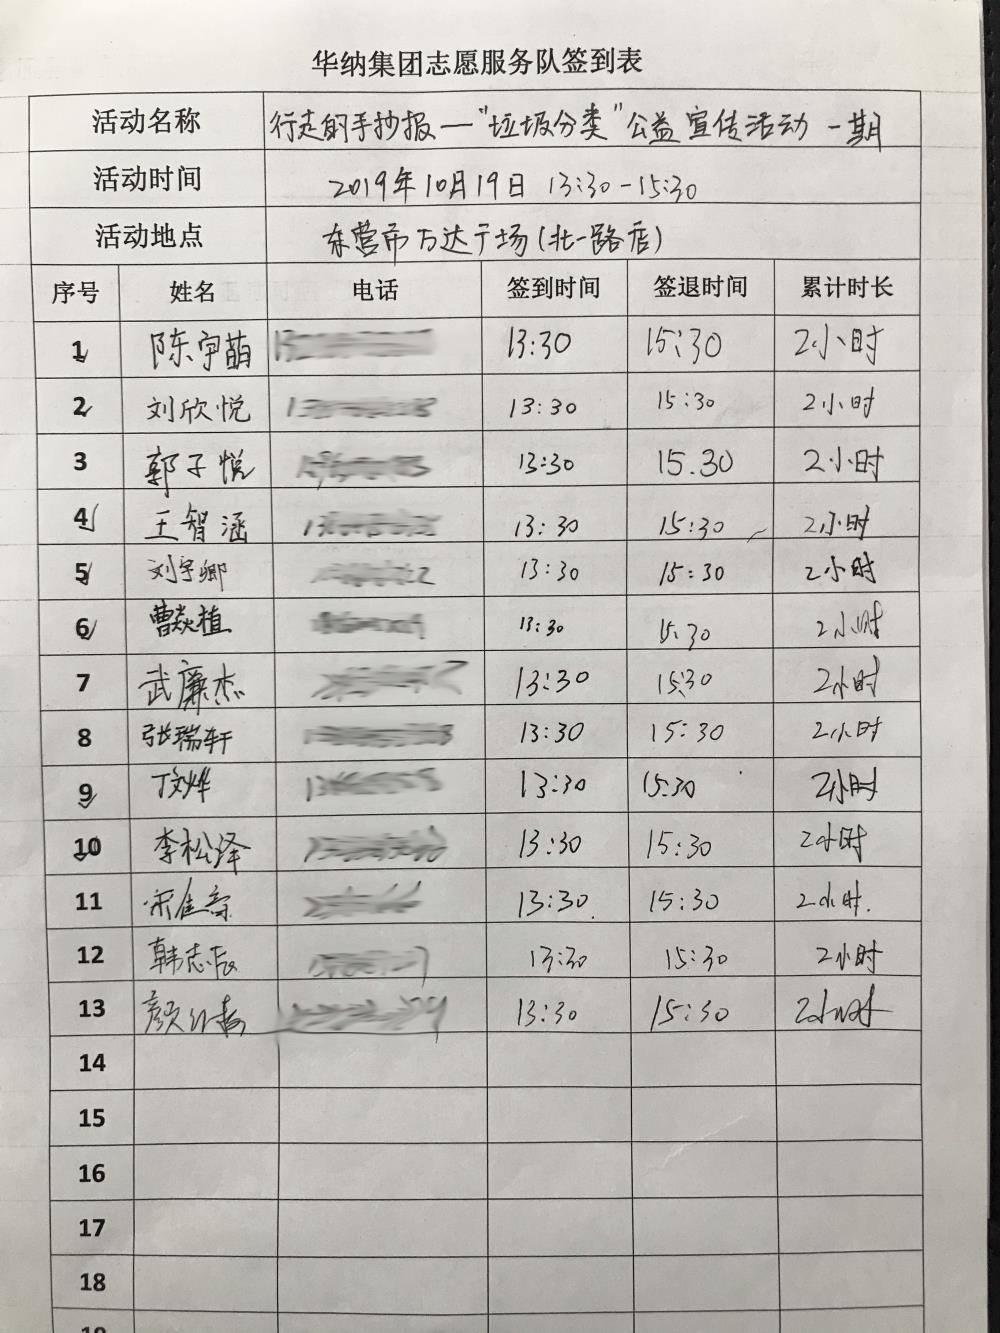 华纳集团志愿服务队签到表
活动名称 行走的手抄报—"垃圾分类"公益宣传活动 一期
活动时间 2019年10月19日 13:30-15:30
活动地点 东营市万达广场(北一路店)
序号 姓名 电话 签到时间 签退时间 累计时长
1 陈宇萌 13:30 15:30 2小时
2 刘欣悦 13:30 15:30 2小时
3 郭子悦 13:30 15.30 2小时
4 王智涵 13:30 15:30 2小时
5 刘宇卿 13:30 15:30 2小时
6 曹焱植 13:30 15:30 2小时
7 武廉杰 13:30 15:30 2小时
8 张瑞轩 13:30 15:30 2小时
9 13:30 15:30 2小时
10 李松泽 13:30 15:30 2小时
11 13:30 15:30 2小时.
12 韩志辰 13:30 15:30 2小时
13 颜 13:30 15:30 2小时
14
15
16
17
18
19